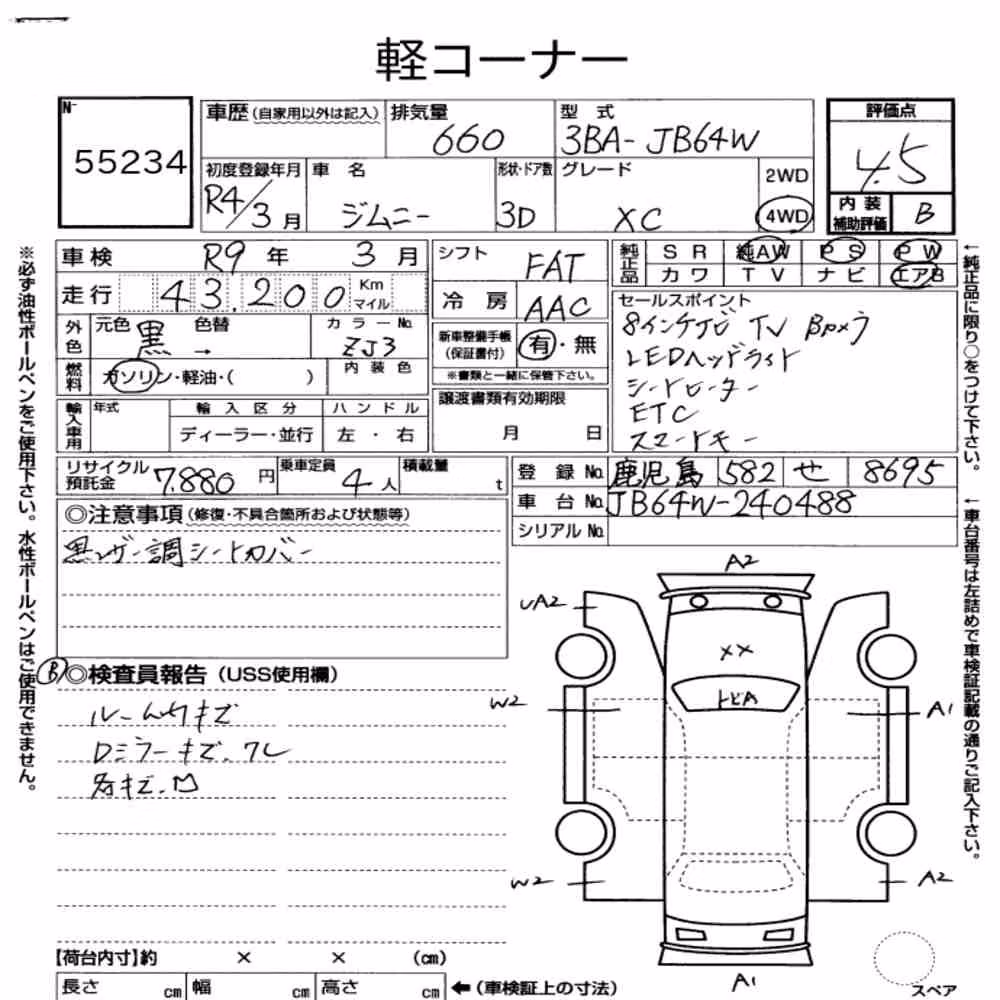 軽コーナー
N-
55234
車歴(自家用以外は記入) 排気量 660 型式 3BA-JB64W 評価点 4.5
初度登録年月 R4/3月 車名 ジムニー 形状・ドア数 3D グレード XC 2WD 4WD 内装補助評価 B
車検 R9年 3月 シフト FAT 純正品 SR 純AW PS PW
カワ TV ナビ エアB
走行 43,200 Km マイル 冷房 AAC
セールスポイント
8インチナビ TV Bカメラ
LEDヘッドライト
シートヒーター
ETC
スマートキー
外色 元色 黒 → 色替 カラーNo. ZJ3
新車整備手帳(保証書付) 有・無
※書類と一緒に保管下さい。
燃料 ガソリン・軽油・( ) 内装色
譲渡書類有効期限
月 日
輸入車用 年式 輸入区分 ハンドル
ディーラー・並行 左・右
リサイクル預託金 7,880円 乗車定員 4人 積載量 t
登録No. 鹿児島 582 せ 8695
車台No. JB64W-240488
シリアルNo.
◎注意事項(修復・不具合箇所および状態等)
黒レザー調シートカバー
Ⓑ◎検査員報告(USS使用欄)
ルーム内キズ
Dミラーキズ.スレ
各キズ.凹
A2
UA2
××
トビA
W2
A1
W2
A2
A1
スペア
【荷台内寸】約 × × (cm)
長さ cm 幅 cm 高さ cm ←(車検証上の寸法)
※必ず油性ボールペンをご使用下さい。水性ボールペンはご使用できません。
←純正品に限り○をつけて下さい。
←車台番号は左詰めで車検証記載の通りご記入下さい。